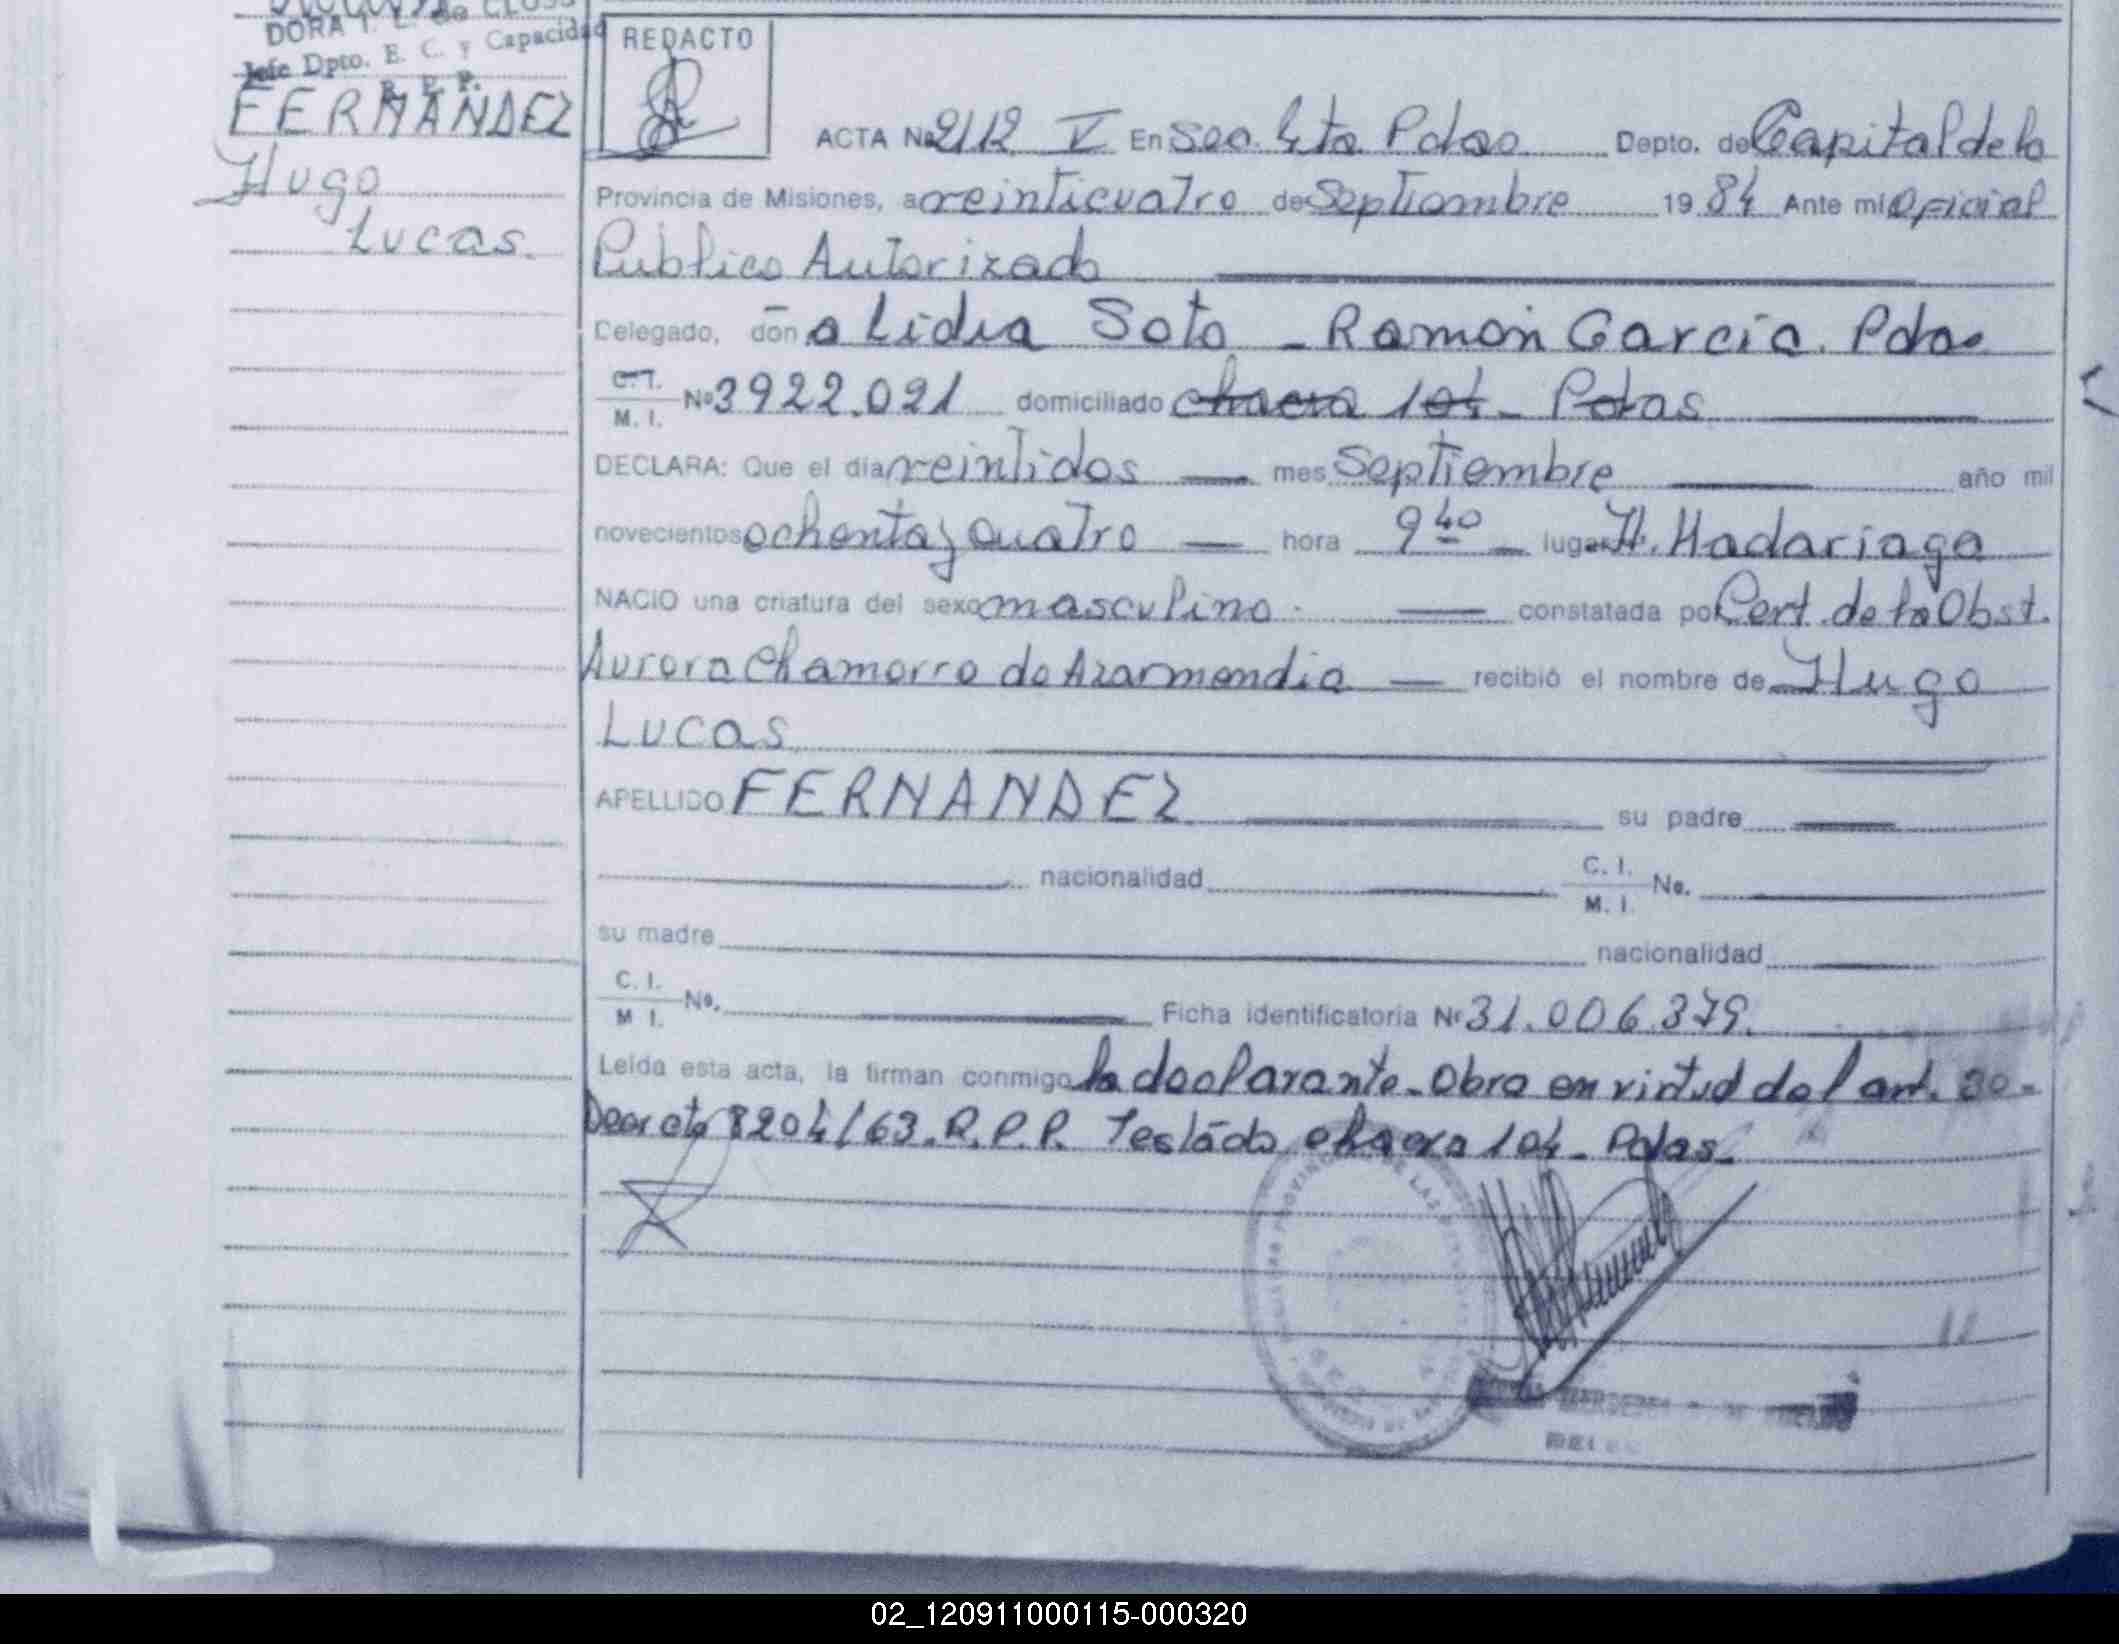 DORA I. L. de CLOSS
Jefe Dpto. E. C. y Capacidad
R. P. P.
FERNANDEZ
Hugo
Lucas.
REDACTO
ACTA Nº 2112 V En Sec. 4ta Pdas Depto. de Capital de la
Provincia de Misiones, a veinticuatro de Septiembre 1984 Ante mi Oficial
Publico Autorizado
Celegado, don a Lidia Soto - Ramón García. Pdas
C. I. M. I. Nº 3922.021 domiciliado chacra 104 - Pdas
DECLARA: Que el día veintidos mes Septiembre año mil
novecientos ochenta y cuatro hora 9 40 lugar H. Madariaga
NACIO una criatura del sexo masculino. constatada por Cert. de la Obst.
Aurora Chamorro de Azarmendia recibió el nombre de Hugo
Lucas
APELLIDO FERNANDEZ su padre
nacionalidad C. I. M. I. No.
su madre nacionalidad
C. I. M I. No. Ficha identificatoria Nº 31.006.379.
Leída esta acta, la firman conmigo la declarante. Obra en virtud del art. 20-
Decreto 8204/63. R.P.P. Testado chacra 104 - Pdas-
02_120911000115-000320